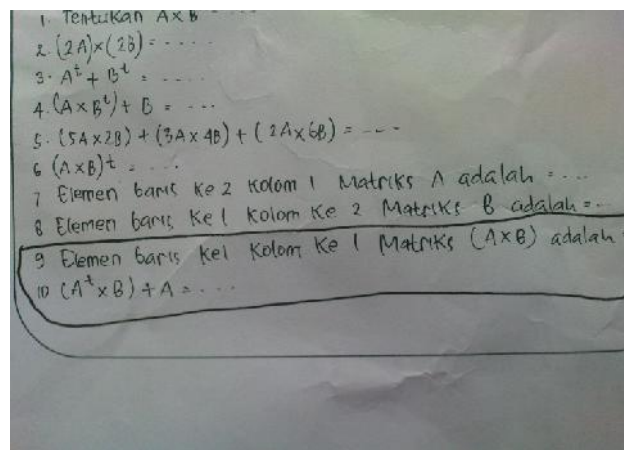 1. Tentukan A x B = ....
2. (2A)x(2B) = .....
3. Aᵗ + Bᵗ = .....
4. (A x Bᵗ) + B = ...
5. (5A x 2B) + (3A x 4B) + (2A x 6B) = ---
6 (A x B)ᵗ = ....
7 Elemen baris ke 2 kolom 1 Matriks A adalah = ....
8 Elemen baris ke 1 kolom ke 2 Matriks B adalah = ..
9 Elemen baris ke1 kolom ke 1 Matriks (A x B) adalah =
10 (Aᵗ x B) + A = ....